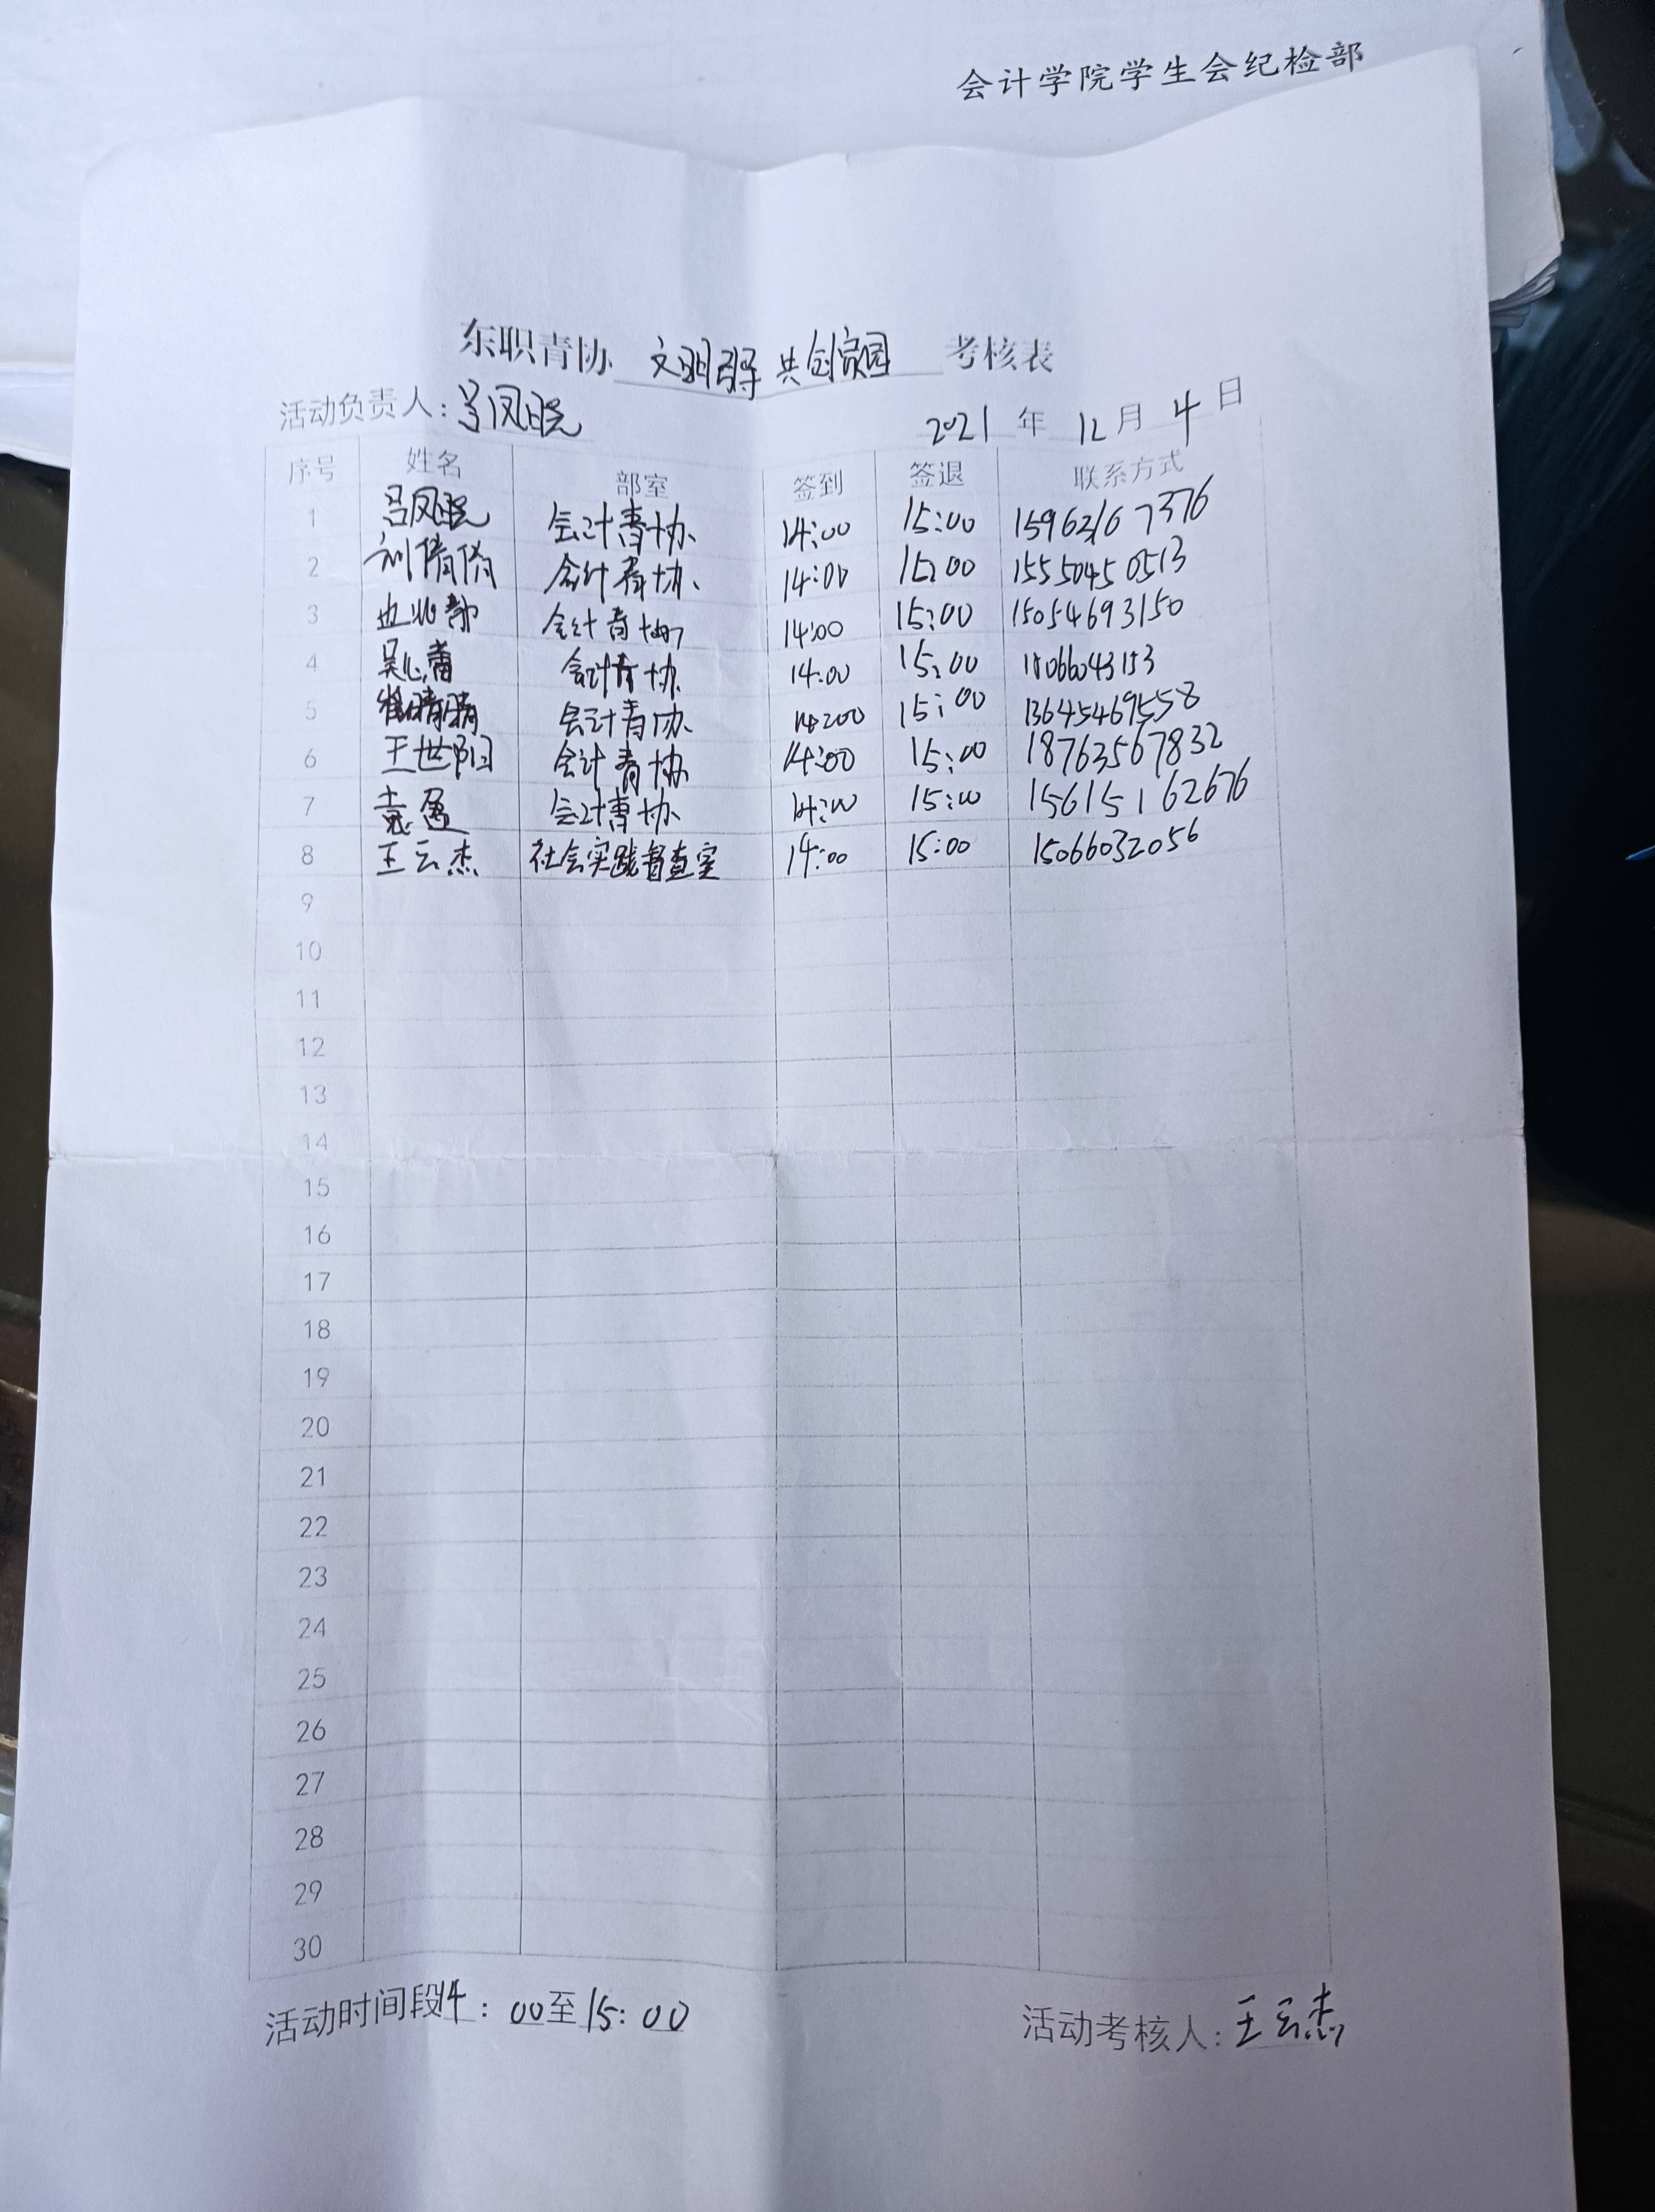 会计学院学生会纪检部
东职青协 文明 共创 考核表
活动负责人：吕凤晓 2021 年 12 月 4 日
序号 姓名 部室 签到 签退 联系方式
1 吕凤晓 会计青协 14:00 15:00 15962167376
2 刘倩倩 会计青协 14:00 15:00 15550450513
3 会计青协 14:00 15:00 15054693150
4 吴心蕾 会计青协 14:00 15:00
5 会计青协 14:00 15:00 13645469558
6 王世阳 会计青协 14:00 15:00 18763567832
7 袁 会计青协 14:00 15:00 15615162676
8 王云杰 社会实践督查室 14:00 15:00 15066032056
9
10
11
12
13
14
15
16
17
18
19
20
21
22
23
24
25
26
27
28
29
30
活动时间段14：00至15：00 活动考核人：王云杰